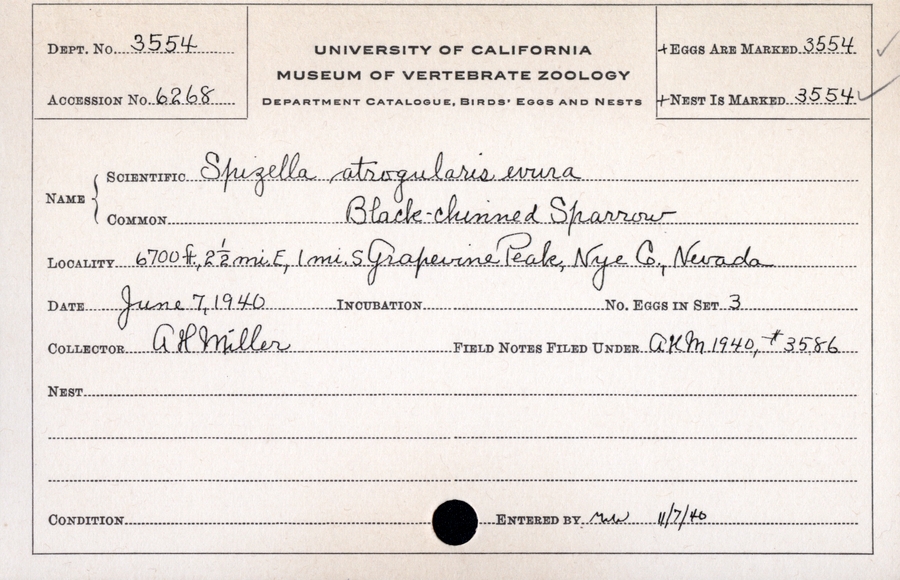 DEPT. NO. 3554
ACCESSION NO. 6268
UNIVERSITY OF CALIFORNIA
MUSEUM OF VERTEBRATE ZOOLOGY
DEPARTMENT CATALOGUE, BIRDS' EGGS AND NESTS
+EGGS ARE MARKED 3554
+NEST IS MARKED 3554
NAME
SCIENTIFIC Spizella atrogularis evura
COMMON Black-chinned Sparrow
LOCALITY 6700 ft, 2½ mi. E, 1 mi. S Grapevine Peak, Nye Co., Nevada
DATE June 7, 1940 INCUBATION NO. EGGS IN SET 3
COLLECTOR AH Miller FIELD NOTES FILED UNDER AHM 1940, #3586
NEST
CONDITION ENTERED BY 11/7/40